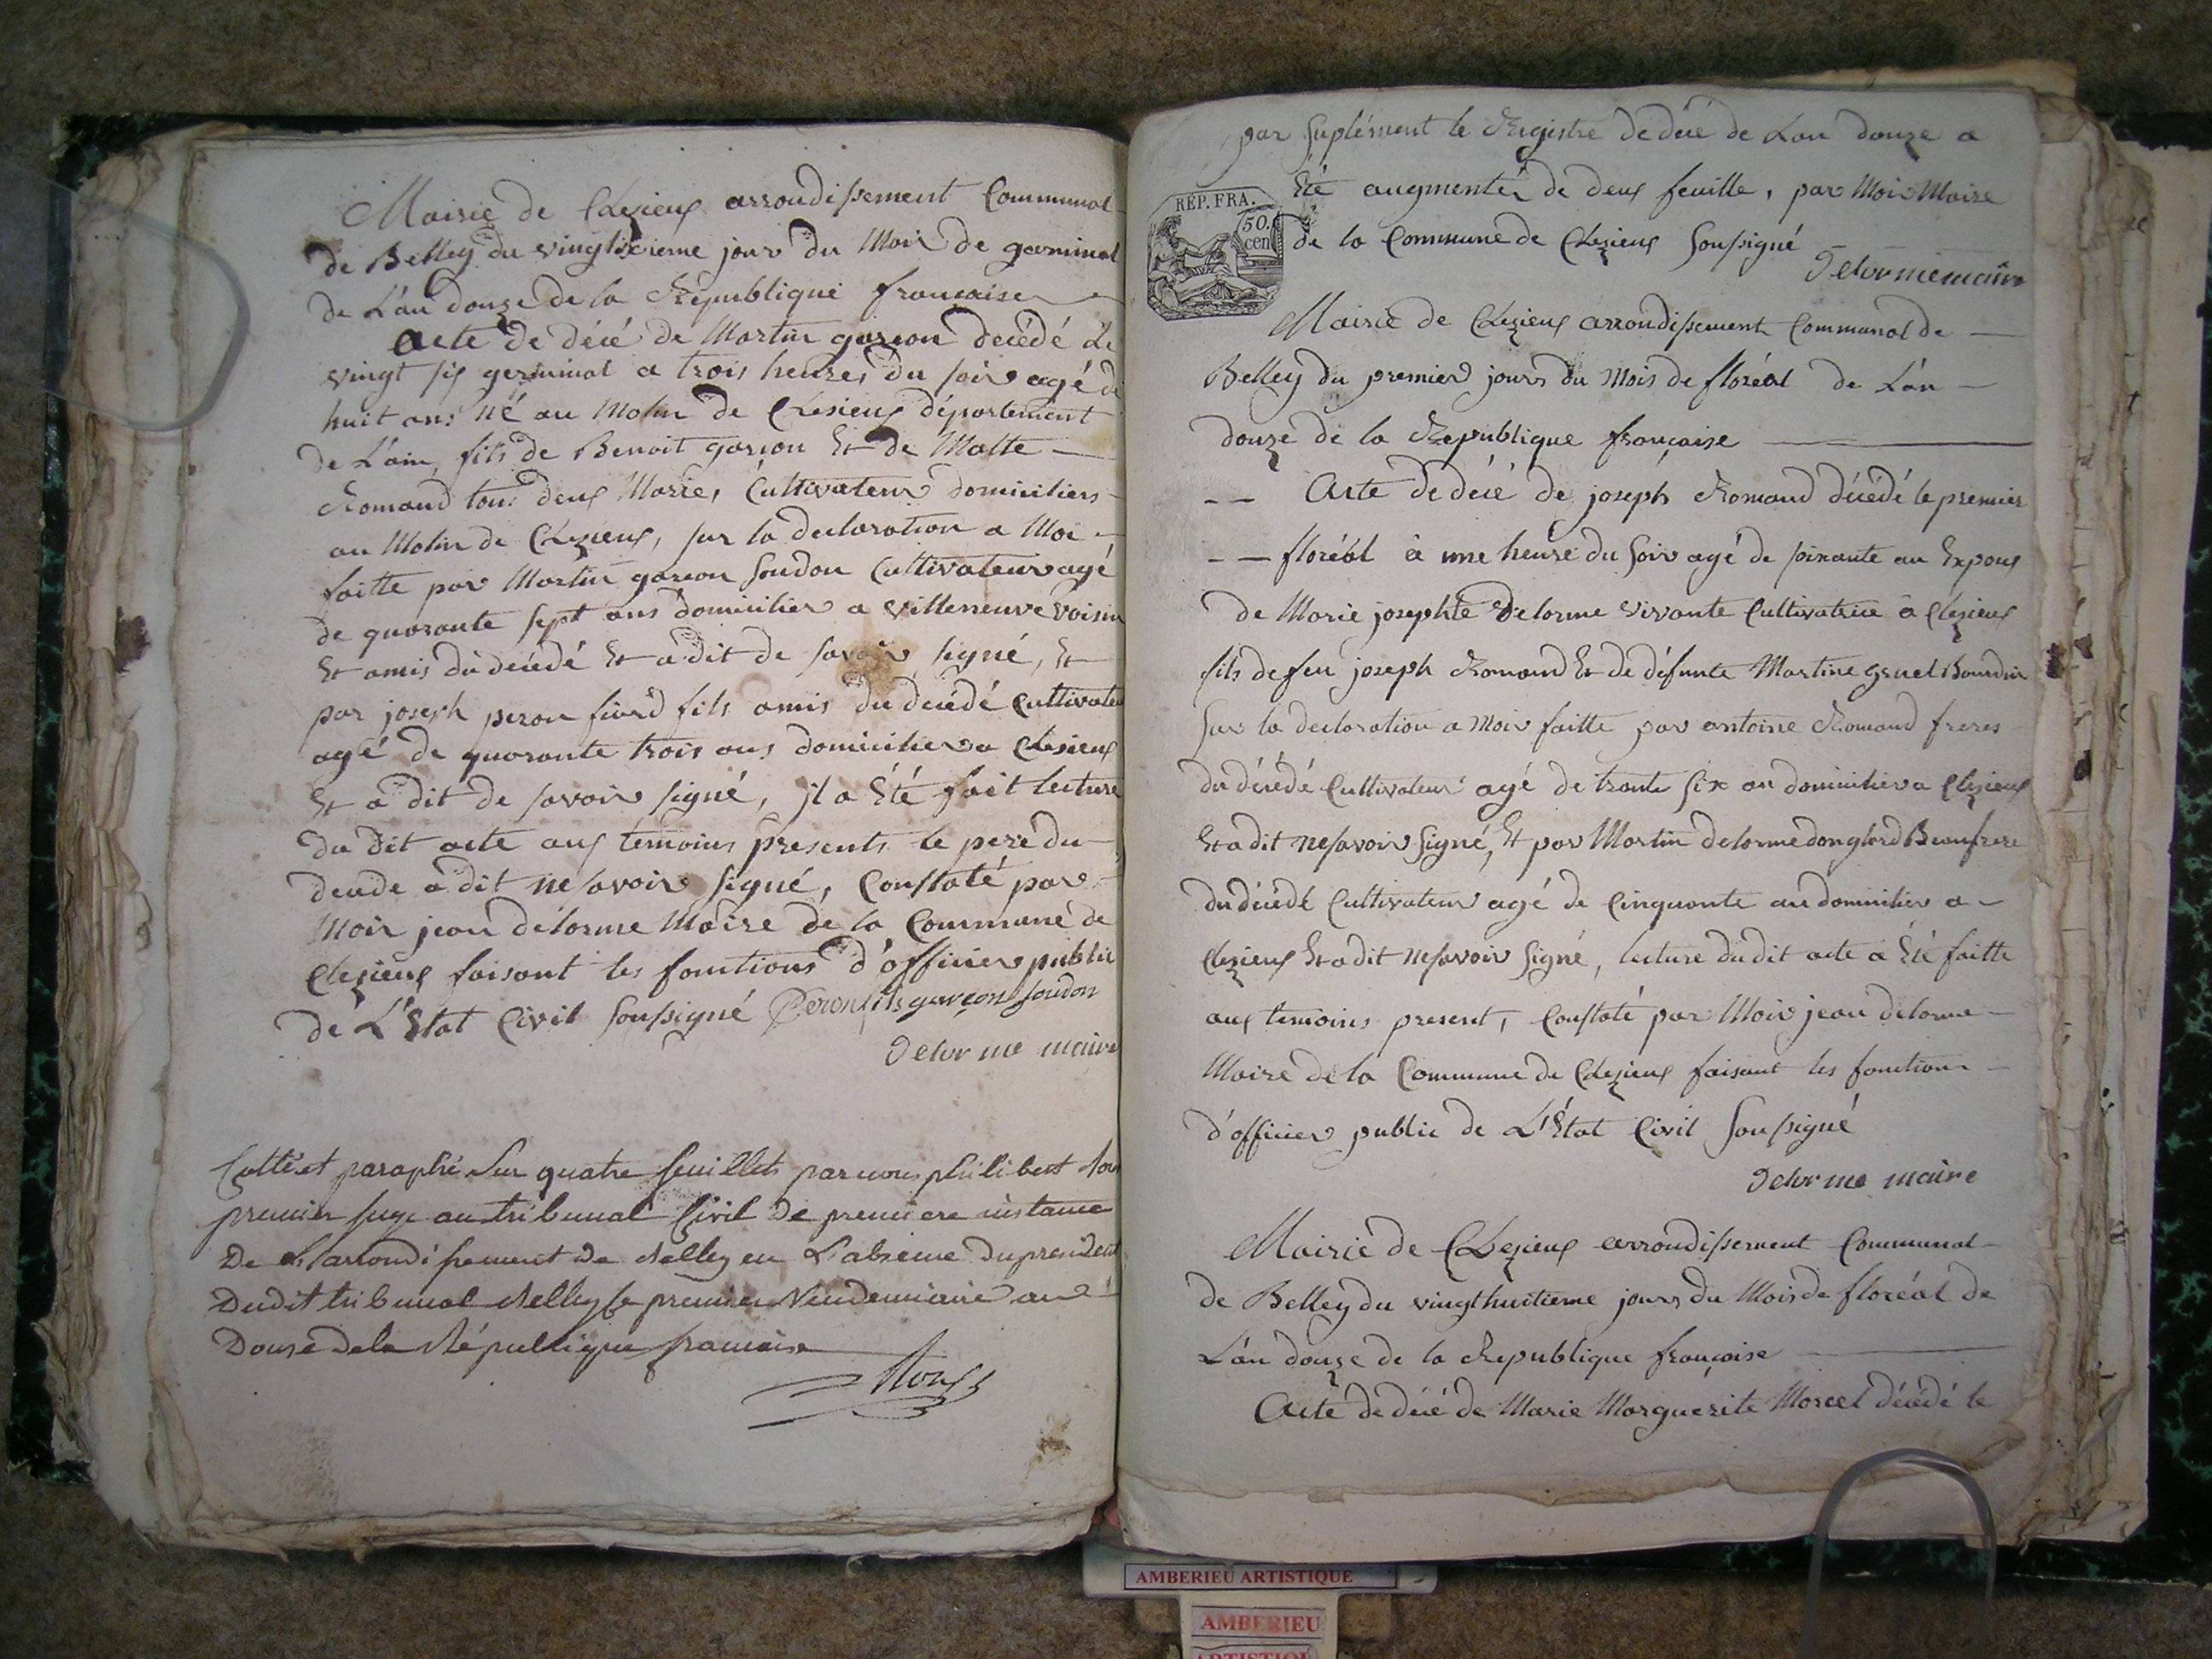 Mairie de Chezieux arrondissement Communal
de Belley du vingtsixieme jour du Mois de germinal
de L'an douze de la République francaise
Acte de décé de Martin garcon decédé Le
vingt six germinal a trois heures du soir agé de
huit ans né au Molin de Chesieux département
de L'ain, fils de Benoit garcon Et de
Romand tous deux Marié, Cultivateur domiciliers
au Molin de Chezieux, sur la declaration a Moi
faitte par Martin garcon Soudon Cultivateur agé
de quarante sept ans domicilier a villeneuve voisin
Et amis du décédé Et a dit de savoir signé, Et
par joseph peron fils amis du decédé Cultivateur
agé de quarante trois ans domicilier a Chesieux
Et a dit de savoir signé, il a Eté fait lecture
du dit acte aux temoins presents le pere du
decede a dit ne savoir signé, Constaté par
Moir jean delorme Maire de la Commune de
Chezieux faisant les fonctions d'officier public
de L'Etat Civil Soussigné Peron fils garçon soudon
delorme maire
Cotté et paraphé Sur quatre feuillets par nous philibert
premier juge au tribunal Civil de premiere instance
De L'arrondissement de Belley en L'absence du president
Dudit tribunal Belley le premier Vendemiaire an
Douse de la République francaise
par suplément le Registre de décé de Lan douze a
Eté augmentér de deux feuille, par Moir Maire
de la Commune de Chezieux Soussigné
delorme maire
RÉP. FRA.
50.
cen
Mairie de Chezieux arrondissement Communal de
Belley du premier jours du Mois de floréal de L'an
douze de la Republique française
Acte de décé de joseph Romand décédé le premier
floréal à une heure du soir agé de soixante an Expoux
de Marie josephte delorme vivante Cultivatrice à Chezieux
fils de feu joseph Romand Et de défunte Martine gruel Bourdin
Sur la declaration a Moir faitte par antoine Romand freres
du décédé Cultivateur agé de trante six an domicilier a Chezieux
Et a dit ne savoir Signé, Et par Martin delorme Beaufrere
du décédé Cultivateur agé de Cinquante an domicilier a
Chezieux Et a dit ne savoir Signé, lecture du dit acte a Eté faitte
aux temoins present, Constaté par Moir jean delorme
Maire de la Commune de Chezieux faisant les fonctions
d'officier public de L'État Civil Soussigné
delorme maire
Mairie de Chezieux arrondissement Communal
de Belley du vingthuitieme jours du Mois de floréal de
L'an douze de la Republique française
Acte de décé de Marie Marguerite Morcel décédé le
AMBERIEU ARTISTIQUE
AMBERIEU
ARTISTIQUE